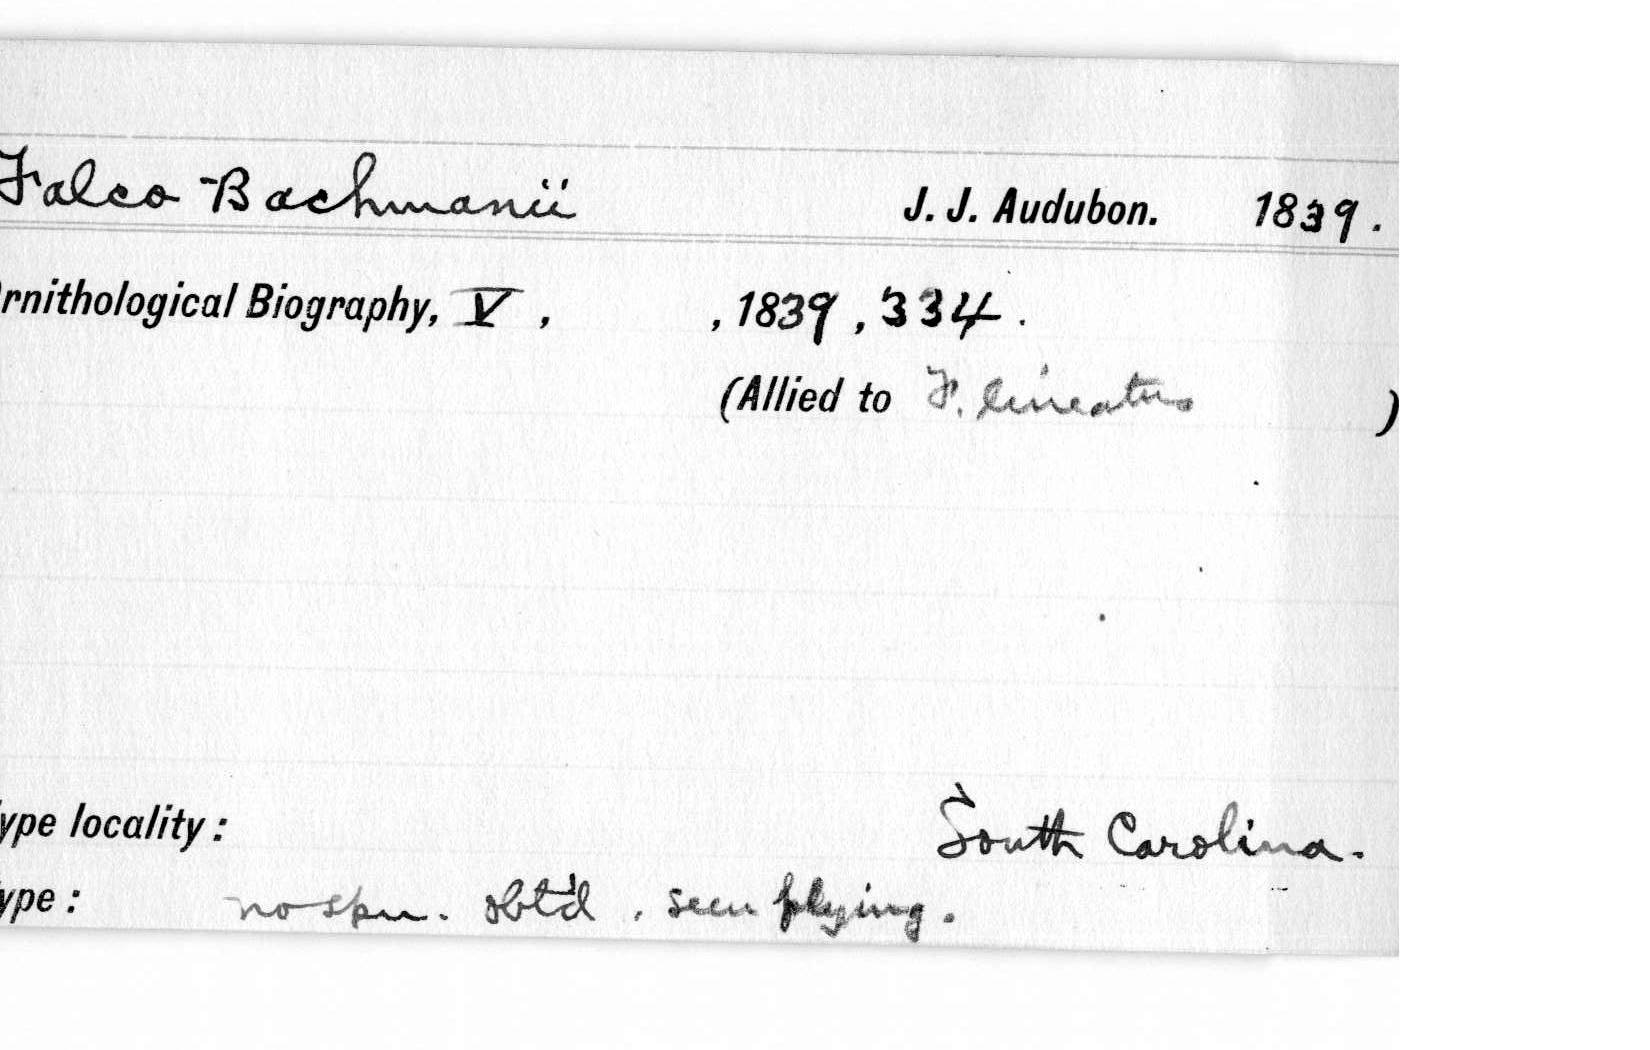 Falco Bachmanii J. J. Audubon. 1839.
rnithological Biography, V, , 1839, 334.
(Allied to F. lineatus )
ype locality: South Carolina.
ype: no spm. obt'd. seen flying.